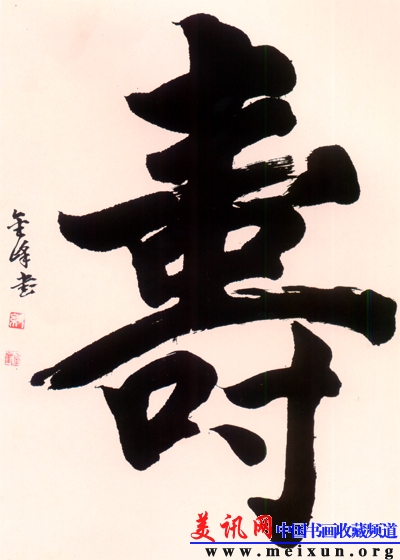 壽
金峰书
美讯网中国书画收藏频道
www.meixun.org